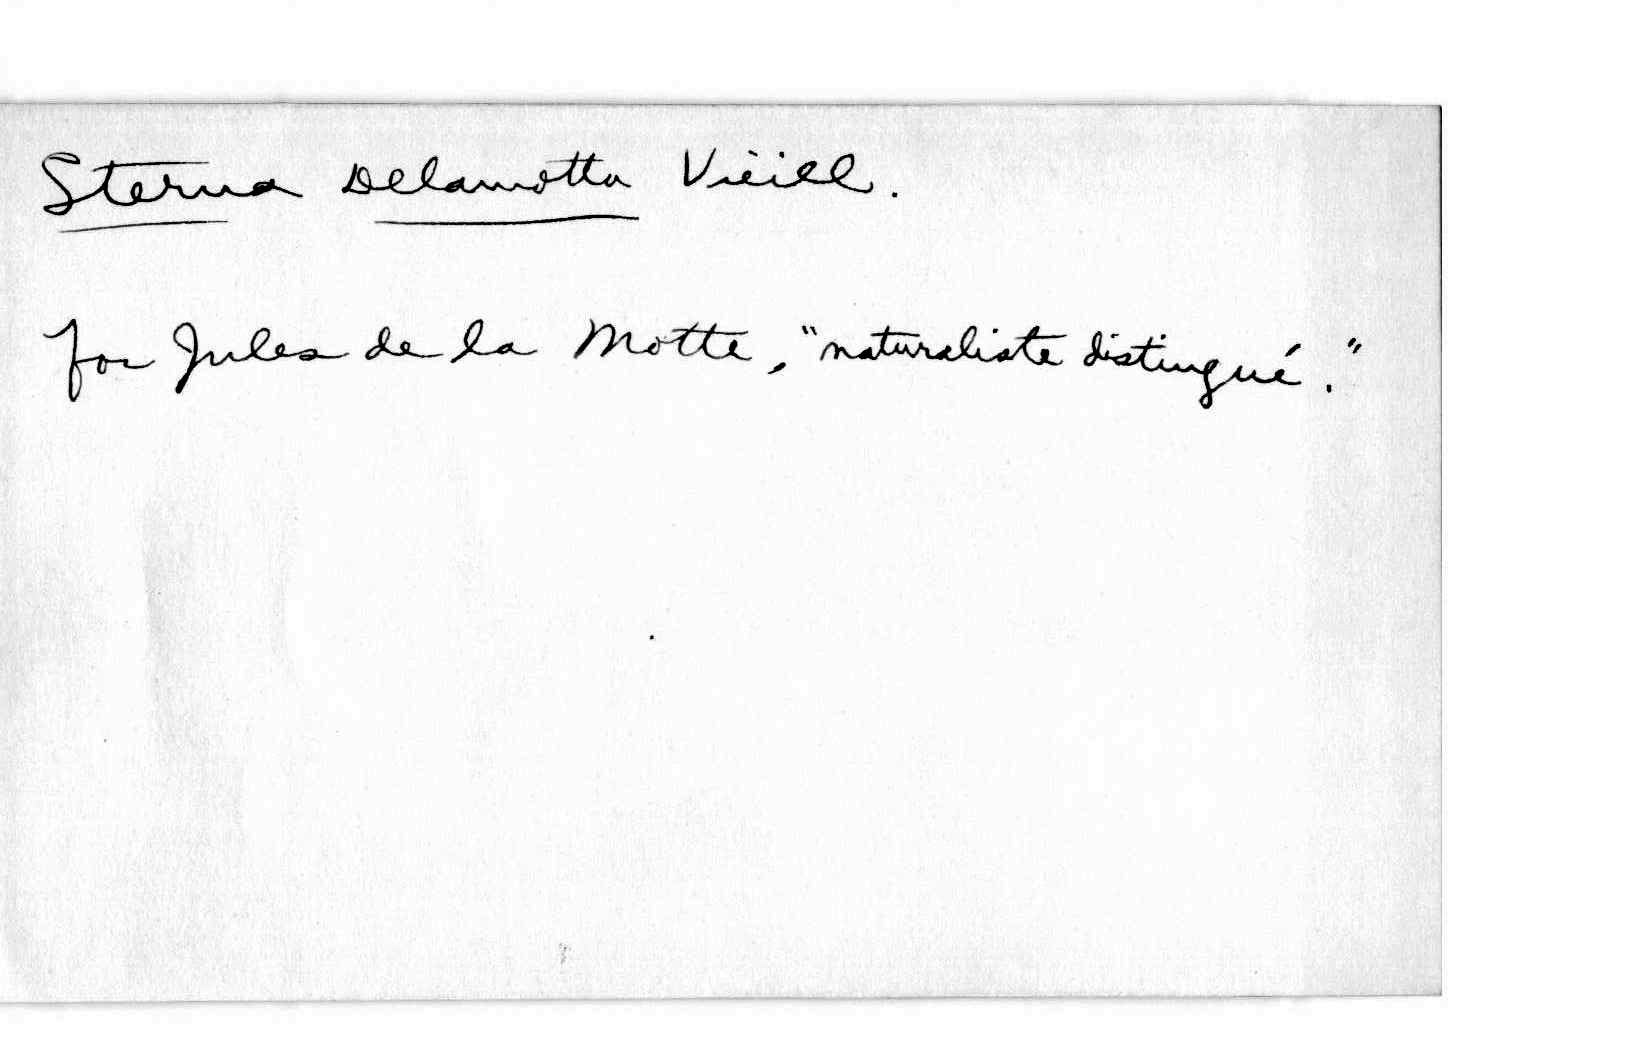 Sterna Delamotta Vieill.
for Jules de la Motte, "naturaliste distingué."